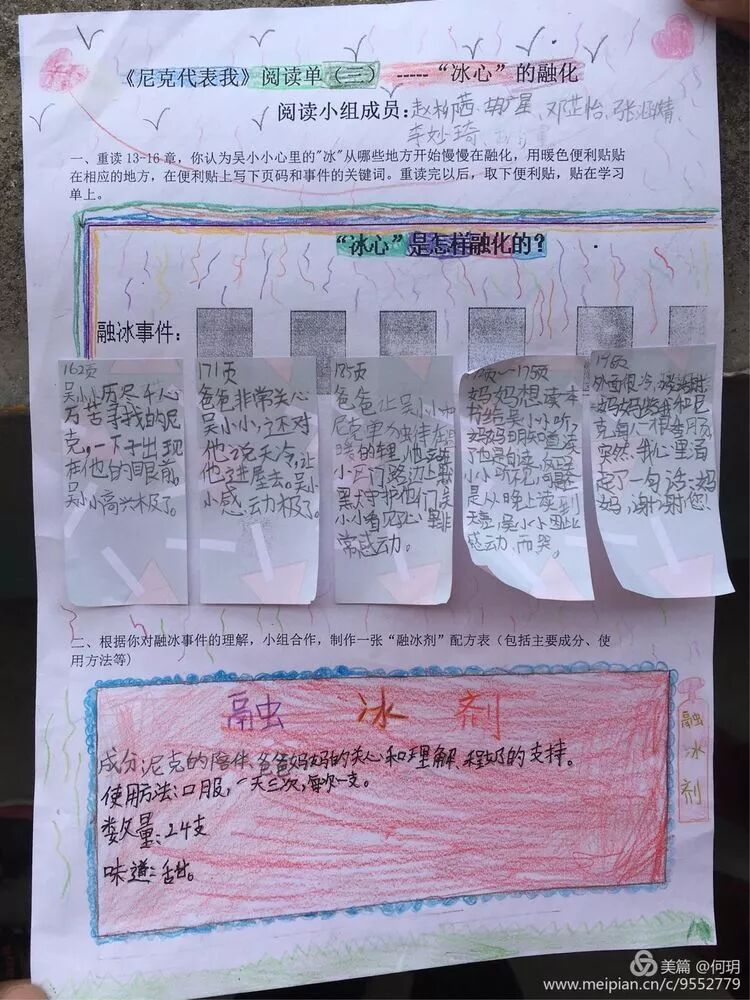 《尼克代表我》阅读单（三） -----“冰心”的融化
阅读小组成员：赵 茜、胡 星、邓芷怡、张 婧、
李妙琦
一、重读 13-16 章，你认为吴小小心里的"冰"从哪些地方开始慢慢在融化，用暖色便利贴贴
在相应的地方，在便利贴上写下页码和事件的关键词。重读完以后，取下便利贴，贴在学习
单上。
“冰心”是怎样融化的？
融冰事件：
162页
吴小小历尽千心
万苦寻找的尼
克，一下子出现
在他的眼前。
吴小小高兴极了。
171页
爸爸非常关心
吴小小，还对
他说天冷，让
他进屋去。吴小
小感动极了。
175页
爸爸让吴小小和
尼克单独待在
暖的车里，他
小区门 路边
黑 守护他们，吴
小小看见 心里非
常感动。
175页
妈妈想读本
书给吴小小听，
妈妈明知道读
了也是白读，
小小听不见，可
是从晚上读到
天亮，吴小小因此
感动而哭。
176页
外面很冷，
妈妈给我和尼
克每人一根
突然，我心里冒
起了一句话：妈
妈，谢谢您！
二、根据你对融冰事件的理解，小组合作，制作一张“融冰剂”配方表（包括主要成分、使
用方法等）
融 冰 剂
成分：尼克的陪伴、爸爸妈妈的关心和理解、程奶的支持。
使用方法：口服，一天三次，每次一支。
数量：24支
味道：甜。
融冰剂
美篇 @何玥
www.meipian.cn/c/9552779